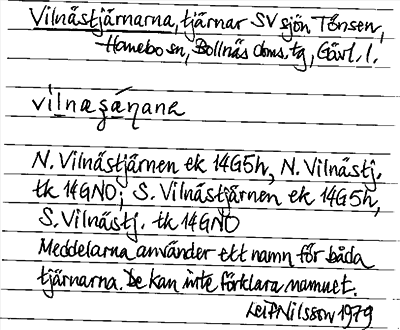 Vilnästjärnarna, tjärnar SV sjön Tönsen,
Hanebo sn, Bollnäs doms. tg, Gävl. l.
vilnæʂæ̣ṇana
N. Vilnästjärnen ek 14G5h, N. Vilnästj.
tk 14GNO; S. Vilnästjärnen ek 14G5h,
S. Vilnästj. tk 14GNO
Meddelarna använder ett namn för båda
tjärnarna. De kan inte förklara namnet.
Leif Nilsson 1979